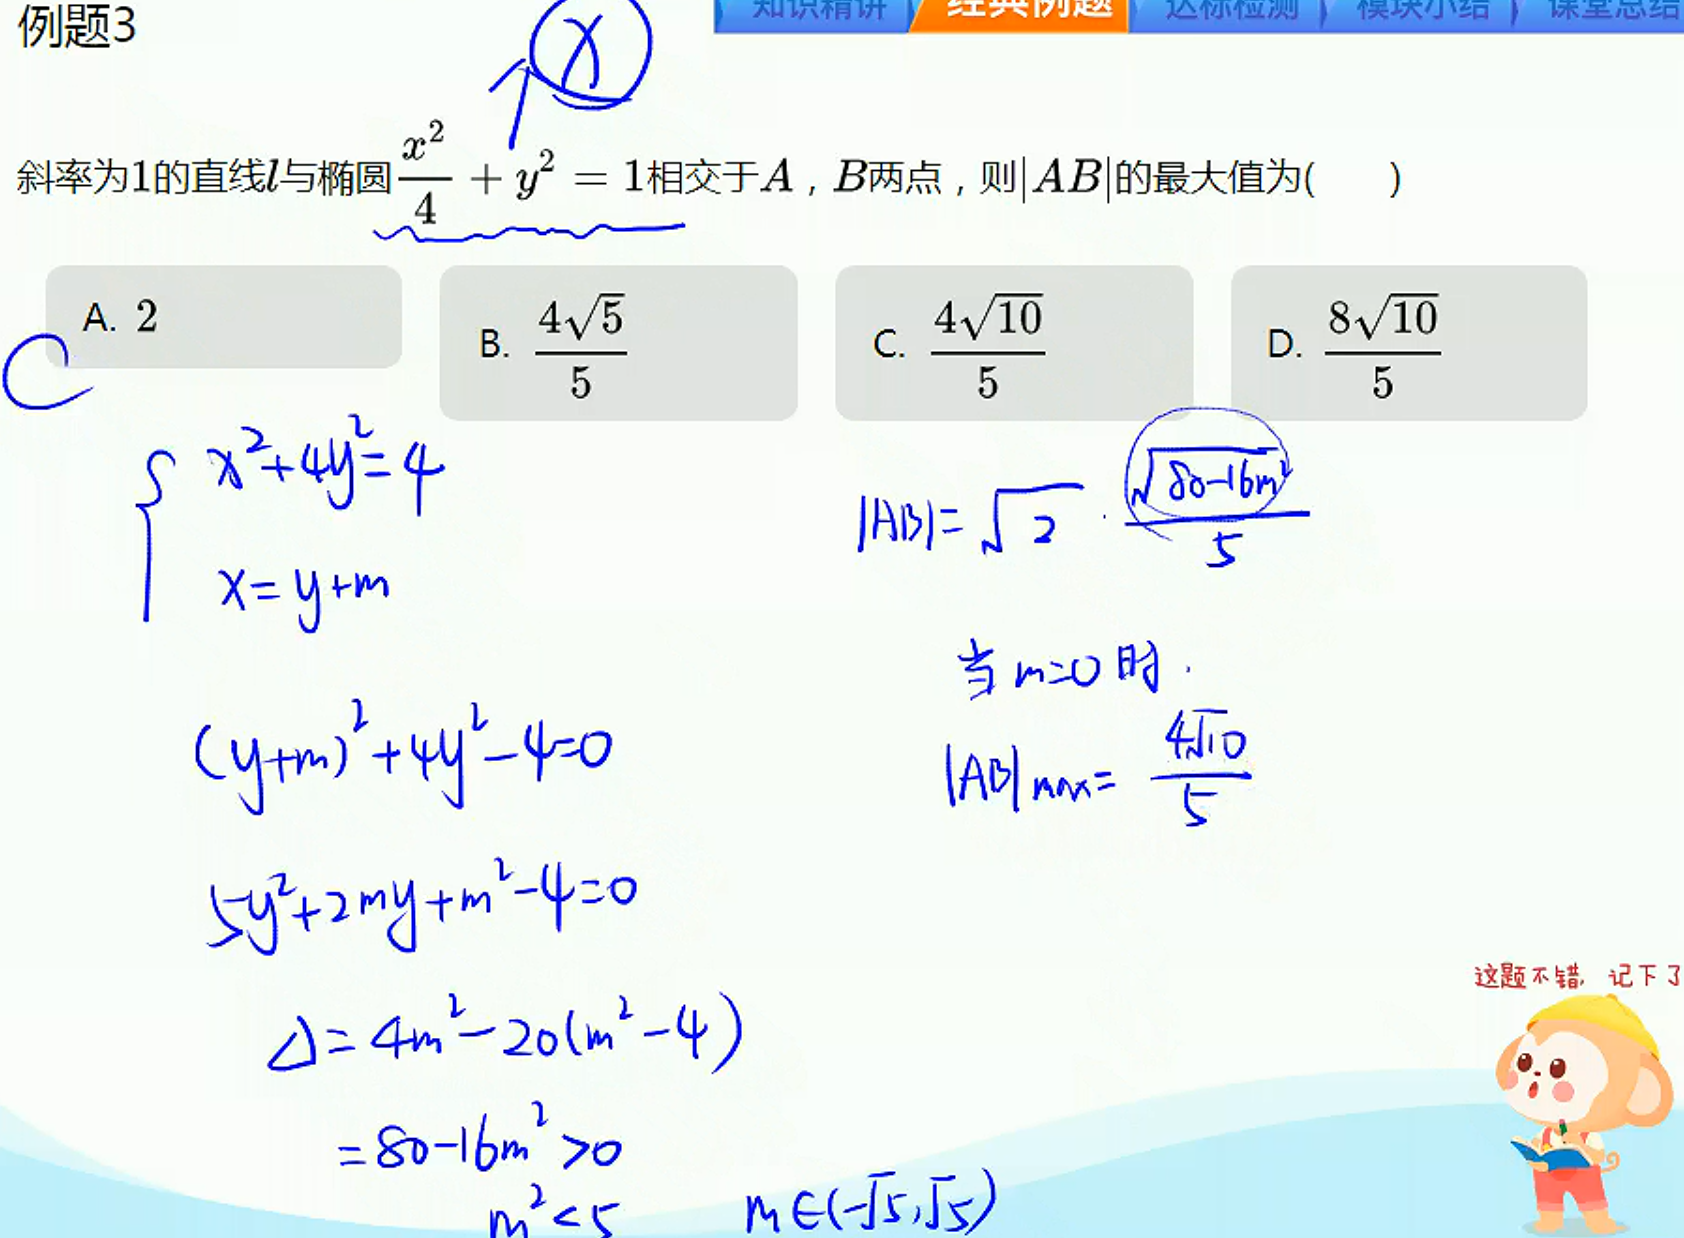 例题3
知识精讲 经典例题 达标检测 模块小结 课堂总结
x
斜率为1的直线l与椭圆x²/4 + y² = 1相交于A，B两点，则|AB|的最大值为(  )
A. 2 B. 4√5/5 C. 4√10/5 D. 8√10/5
C
x²+4y²=4
x=y+m
(y+m)²+4y²-4=0
5y²+2my+m²-4=0
Δ=4m²-20(m²-4)
=80-16m²>0
m²<5 m∈(-√5,√5)
|AB|=√2·√80-16m²/5
当m=0时.
|AB|max=4√10/5
这题不错，记下了